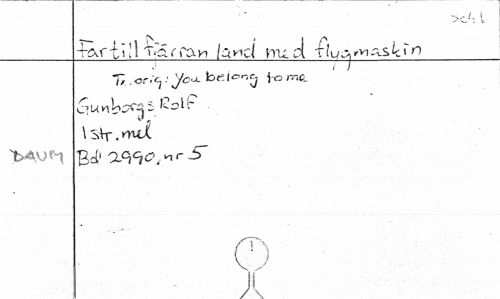 schl
Far till fjärran land med flygmaskin
Tr. orig: you belong to me
Gunborgs Rolf
1 str. mel
DAUM Bd 2990, nr 5
1